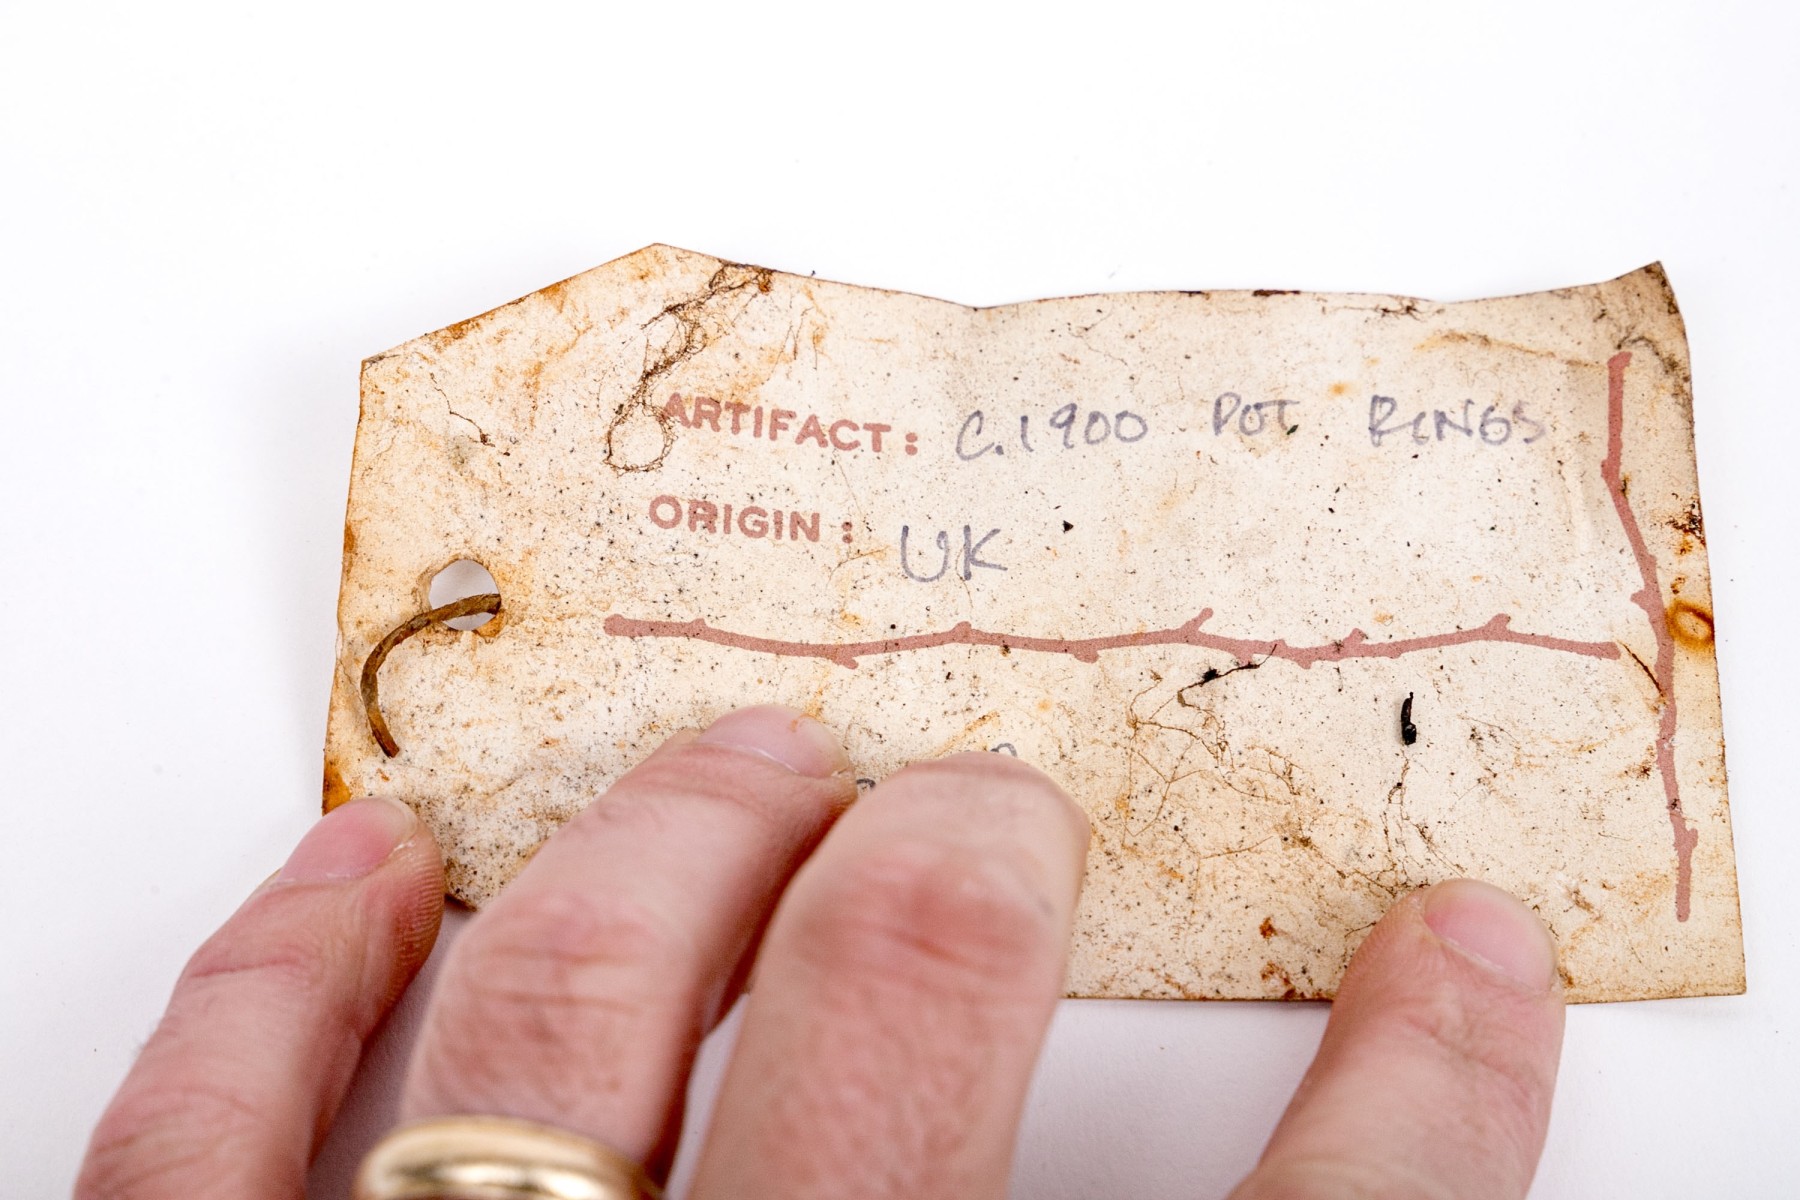 ARTIFACT: C.1900 POT RINGS
ORIGIN: UK